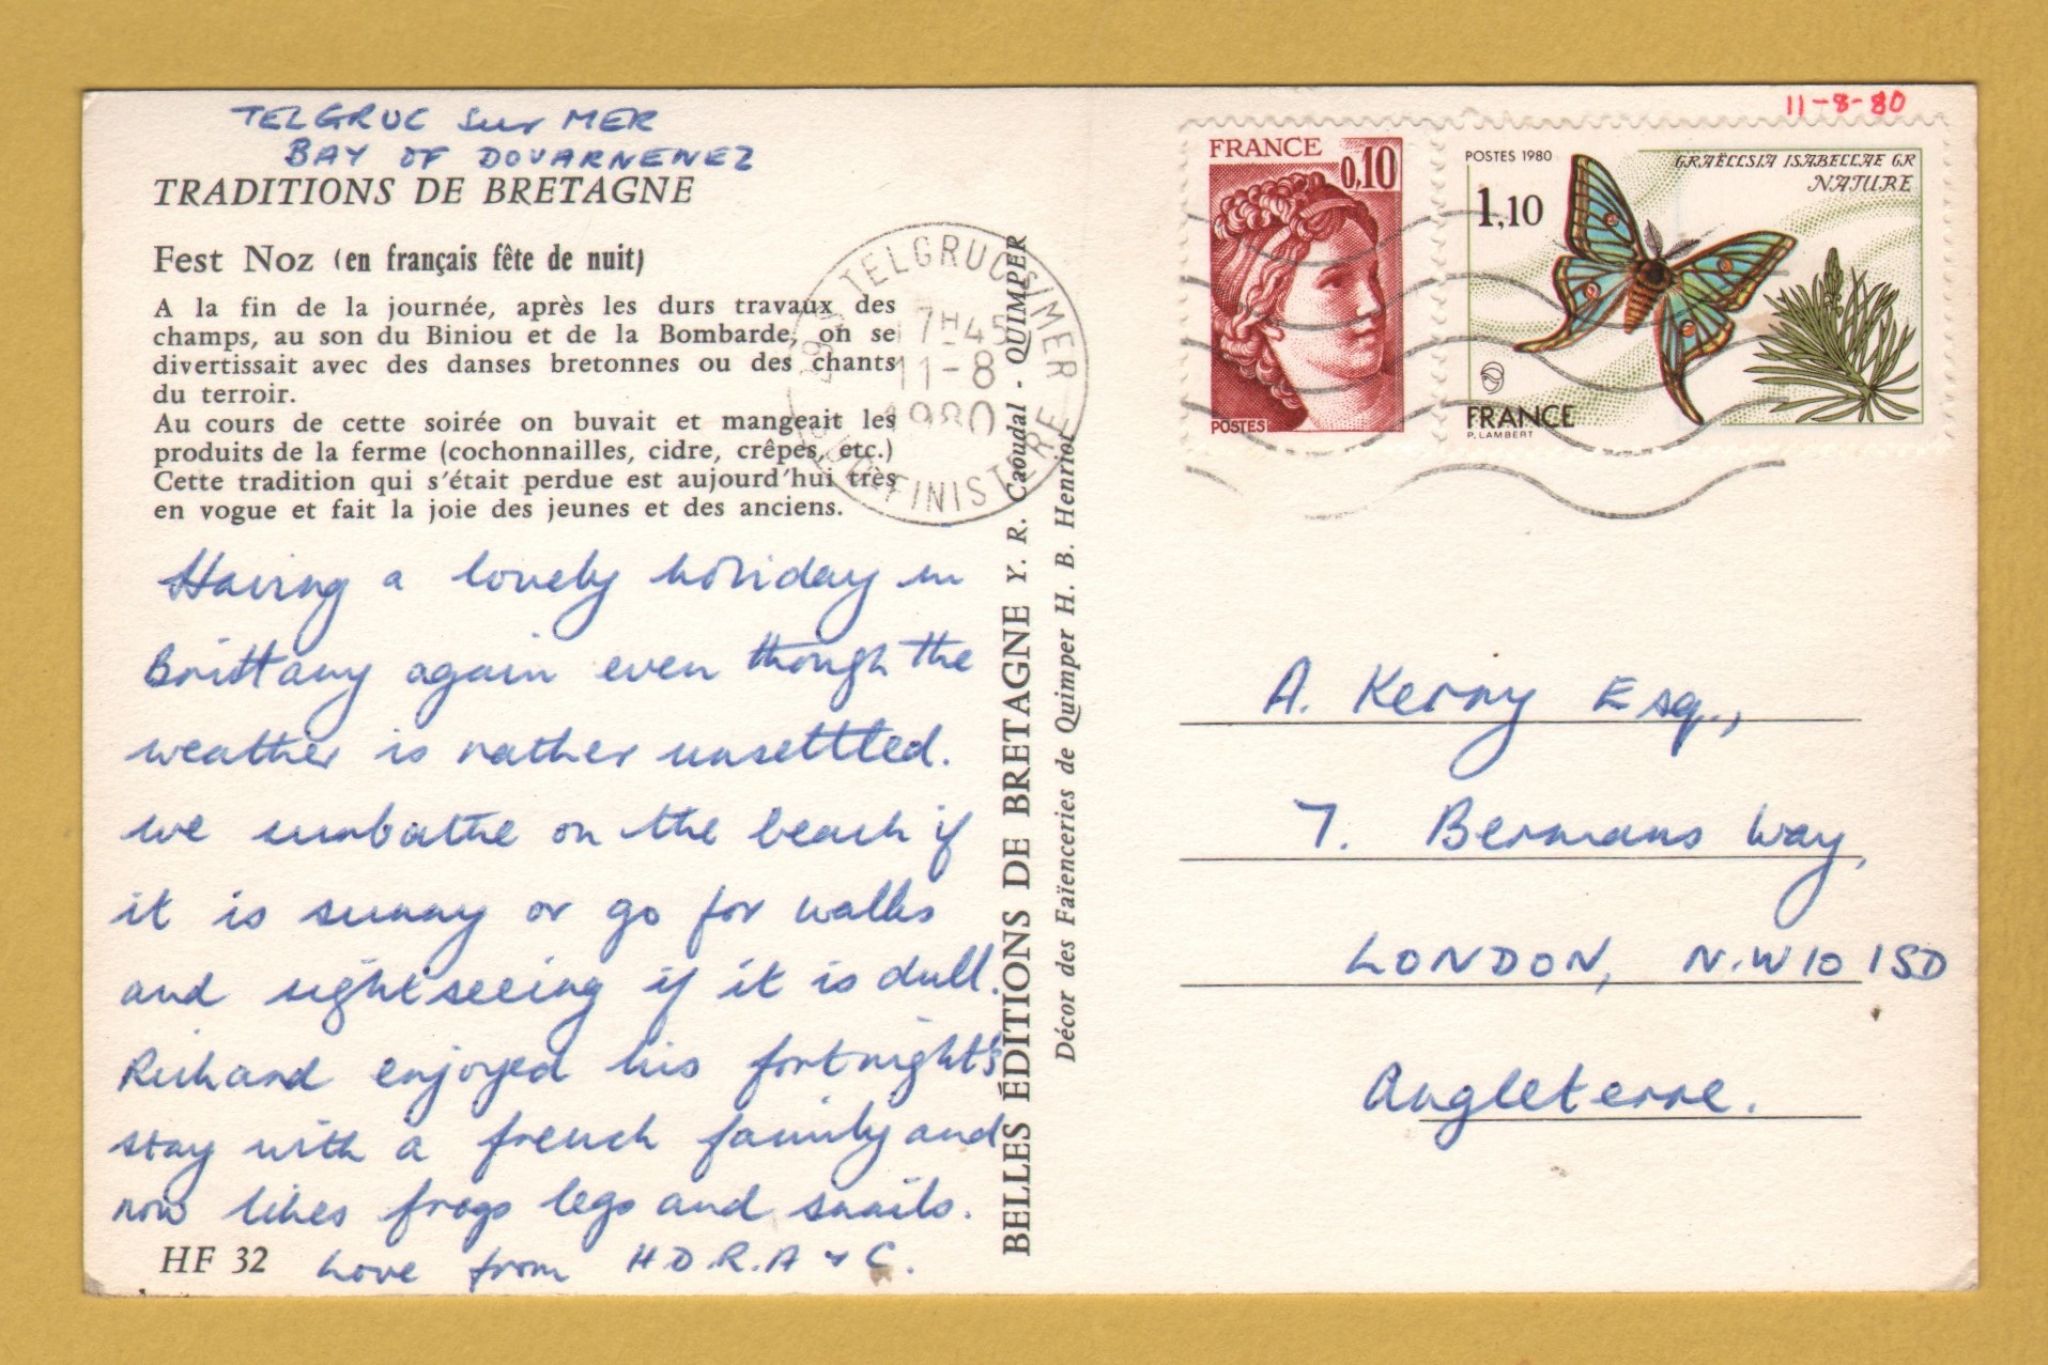 TELGRUC sur MER
BAY OF DOUARNENEZ
TRADITIONS DE BRETAGNE
Fest Noz (en français fête de nuit)
A la fin de la journée, après les durs travaux des
champs, au son du Biniou et de la Bombarde, on se
divertissait avec des danses bretonnes ou des chants
du terroir.
Au cours de cette soirée on buvait et mangeait les
produits de la ferme (cochonnailles, cidre, crêpes, etc.)
Cette tradition qui s'était perdue est aujourd'hui très
en vogue et fait la joie des jeunes et des anciens.
Having a lovely holiday in
Brittany again even though the
weather is rather unsettled.
we sunbathe on the beach if
it is sunny or go for walks
and sightseeing if it is dull.
Richard enjoyed his fortnight's
stay with a french family and
now likes frogs legs and snails.
HF 32
Love from H D.R.A + C.
TELGRUC S/MER
17H45
11-8
1980
FINISTERE
BELLES ÉDITIONS DE BRETAGNE Y. R. Caoudal - QUIMPER
Décor des Faïenceries de Quimper H. B. Henriot
11-8-80
FRANCE
0,10
POSTES
POSTES 1980
1,10
GRAËLLSIA ISABELLAE GR
NATURE
FRANCE
P. LAMBERT
A. Kenny Esq.,
7. Bermans Way,
LONDON, N.W10 1SD
Angleterre.